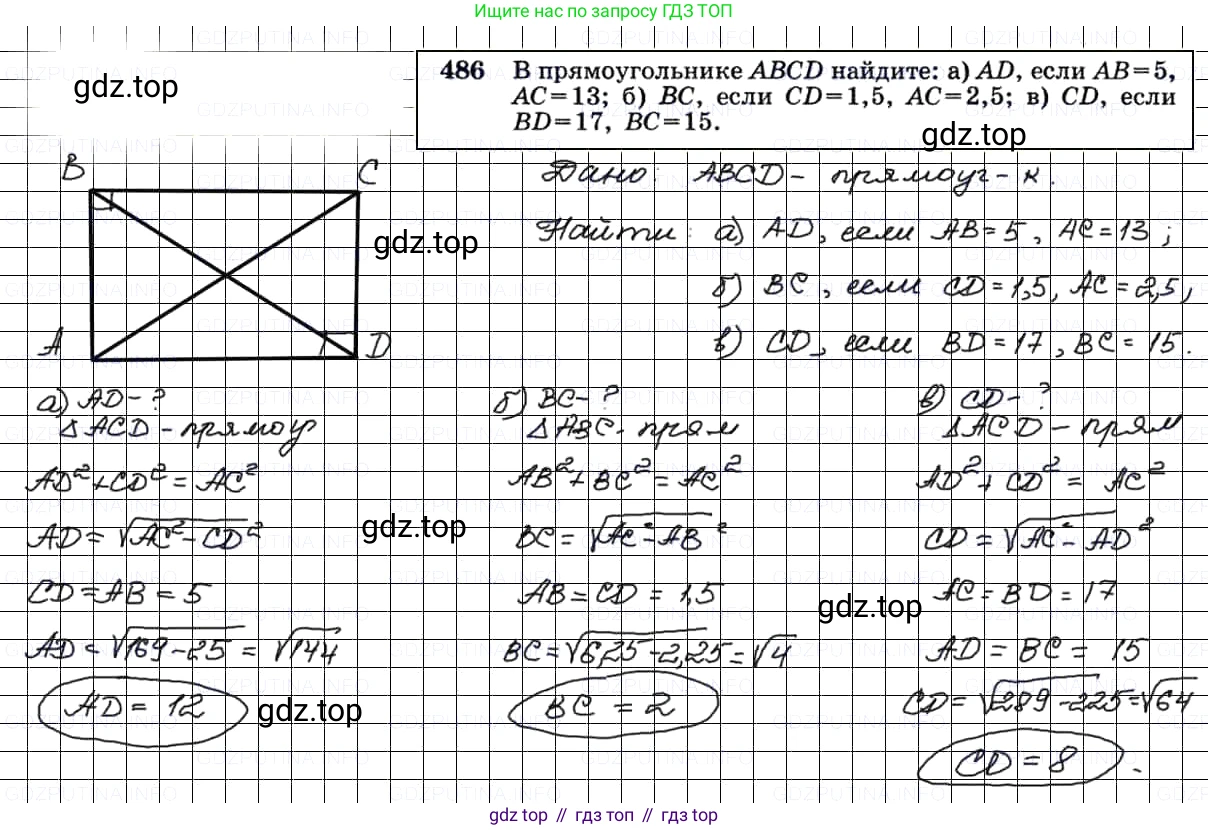 Ищите нас по запросу ГДЗ ТОП
486 В прямоугольнике ABCD найдите: а) AD, если AB=5,
AC=13; б) BC, если CD=1,5, AC=2,5; в) CD, если
BD=17, BC=15.
gdz.top
gdz.top
B
C
A
D
gdz.top
Дано: ABCD - прямоуг-к.
Найти: а) AD, если AB=5, AC=13;
б) BC, если CD=1,5, AC=2,5;
в) CD, если BD=17, BC=15.
а) AD-?
△ACD - прямоуг
AD²+CD²=AC²
AD=√AC²-CD²
CD=AB=5
AD=√169-25=√144
AD=12
gdz.top
gdz.top
б) BC-?
△ABC-прям
AB²+BC²=AC²
BC=√AC²-AB²
AB=CD=1,5
BC=√6,25-2,25=√4
BC=2
gdz.top
в) CD-?
△ACD-прям
AD²+CD²=AC²
CD=√AC²-AD²
AC=BD=17
AD=BC=15
CD=√289-225=√64
CD=8.
gdz топ // гдз топ // гдз top
GDZPUTINA.INFO